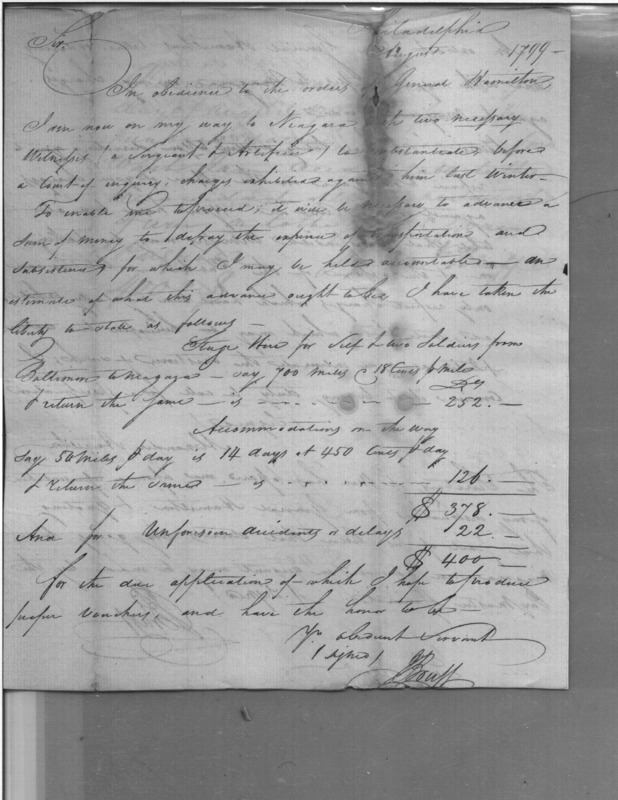 Philadelphia
Sir, August 1799 —
In obedience to the orders of General Hamilton,
I am now on my way to Niagara with two necessary
Witnesses (a Sergeant & Artificer) to substantiate before
a Court of inquiry; charges exhibited against him last Winter —
To enable me to proceed; it will be necessary to advance a
Sum of money to defray the expence of transportation and
Subsistence; for which I may be held accountable — an
estimate of what this advance ought to be, I have taken the
liberty to state as follows —
Stage Hire for Self & two Soldiers from
Baltimore to Neagaga — say 700 Miles @ 18 Cents p Mile
& return the same — is — 252. —
Accommodations on the way
say 50 Miles p day is 14 days at 450 Cents p day
& return the same — is — 126. —
$ 378. —
And for Unforeseen accidents or delays 22. —
$ 400 —
for the due application of which I hope to produce
proper vouchers, and have the honor to be
Yr. obedient Servant
(signed)
J Bruff